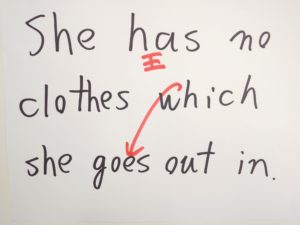 She has no
clothes which
she goes out in.